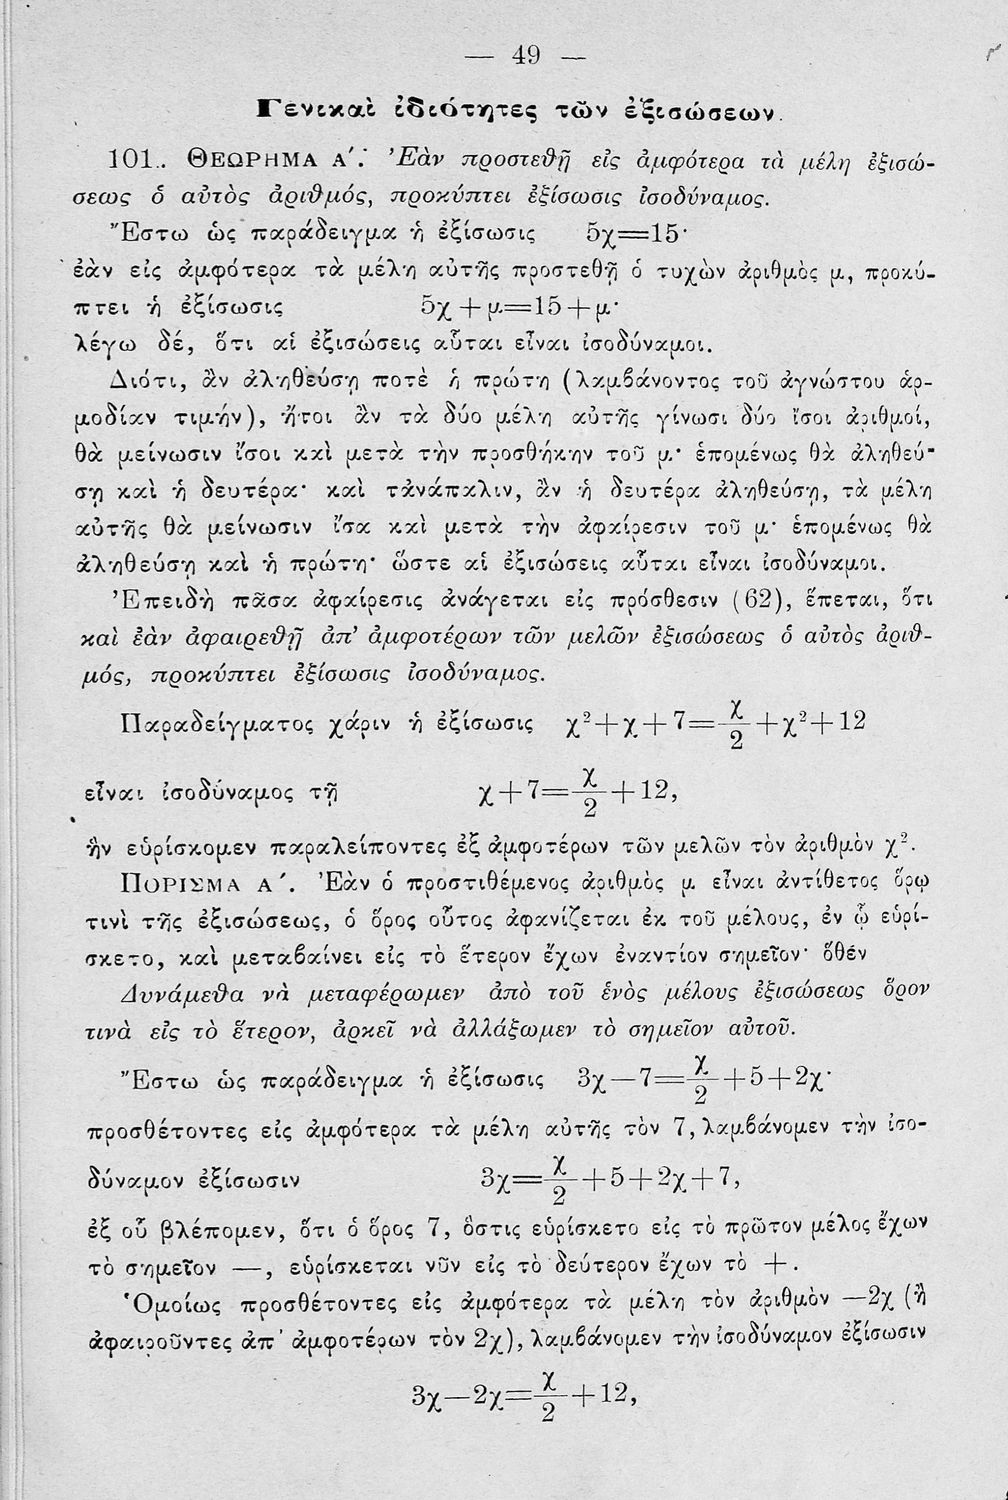 — 49 —
Γενικαὶ ἰδιότητες τῶν ἐξισώσεων.
101.. ΘΕΩΡΗΜΑ Α΄. Ἐὰν προστεθῇ εἰς ἀμφότερα τὰ μέλη ἐξισώ-
σεως ὁ αὐτὸς ἀριθμός, προκύπτει ἐξίσωσις ἰσοδύναμος.
Ἔστω ὡς παράδειγμα ἡ ἐξίσωσις 5χ=15·
ἐὰν εἰς ἀμφότερα τὰ μέλη αὐτῆς προστεθῇ ὁ τυχὼν ἀριθμὸς μ, προκύ-
πτει ἡ ἐξίσωσις 5χ+μ=15+μ·
λέγω δέ, ὅτι αἱ ἐξισώσεις αὗται εἶναι ἰσοδύναμοι.
Διότι, ἂν ἀληθεύσῃ ποτὲ ἡ πρώτη (λαμβάνοντος τοῦ ἀγνώστου ἁρ-
μοδίαν τιμήν), ἤτοι ἂν τὰ δύο μέλη αὐτῆς γίνωσι δύο ἴσοι ἀριθμοί,
θὰ μείνωσιν ἴσοι καὶ μετὰ τὴν προσθήκην τοῦ μ· ἑπομένως θὰ ἀληθεύ-
σῃ καὶ ἡ δευτέρα· καὶ τἀνάπαλιν, ἂν ἡ δευτέρα ἀληθεύσῃ, τὰ μέλη
αὐτῆς θὰ μείνωσιν ἴσα καὶ μετὰ τὴν ἀφαίρεσιν τοῦ μ· ἑπομένως θὰ
ἀληθεύσῃ καὶ ἡ πρώτη· ὥστε αἱ ἐξισώσεις αὗται εἶναι ἰσοδύναμοι.
Ἐπειδὴ πᾶσα ἀφαίρεσις ἀνάγεται εἰς πρόσθεσιν (62), ἕπεται, ὅτι
καὶ ἐὰν ἀφαιρεθῇ ἀπ' ἀμφοτέρων τῶν μελῶν ἐξισώσεως ὁ αὐτὸς ἀριθ-
μός, προκύπτει ἐξίσωσις ἰσοδύναμος.
Παραδείγματος χάριν ἡ ἐξίσωσις χ²+χ+7=χ/2+χ²+12
εἶναι ἰσοδύναμος τῇ χ+7=χ/2+12,
ἣν εὑρίσκομεν παραλείποντες ἐξ ἀμφοτέρων τῶν μελῶν τὸν ἀριθμὸν χ².
ΠΟΡΙΣΜΑ Α΄. Ἐὰν ὁ προστιθέμενος ἀριθμὸς μ εἶναι ἀντίθετος ὅρῳ
τινὶ τῆς ἐξισώσεως, ὁ ὅρος οὗτος ἀφανίζεται ἐκ τοῦ μέλους, ἐν ᾧ εὑρί-
σκετο, καὶ μεταβαίνει εἰς τὸ ἕτερον ἔχων ἐναντίον σημεῖον· ὅθέν
Δυνάμεθα νὰ μεταφέρωμεν ἀπὸ τοῦ ἑνὸς μέλους ἐξισώσεως ὅρον
τινὰ εἰς τὸ ἕτερον, ἀρκεῖ νὰ ἀλλάξωμεν τὸ σημεῖον αὐτοῦ.
Ἔστω ὡς παράδειγμα ἡ ἐξίσωσις 3χ—7=χ/2+5+2χ·
προσθέτοντες εἰς ἀμφότερα τὰ μέλη αὐτῆς τὸν 7, λαμβάνομεν τὴν ἰσο-
δύναμον ἐξίσωσιν 3χ=χ/2+5+2χ+7,
ἐξ οὗ βλέπομεν, ὅτι ὁ ὅρος 7, ὅστις εὑρίσκετο εἰς τὸ πρῶτον μέλος ἔχων
τὸ σημεῖον —, εὑρίσκεται νῦν εἰς τὸ δεύτερον ἔχων τὸ +.
Ὁμοίως προσθέτοντες εἰς ἀμφότερα τὰ μέλη τὸν ἀριθμὸν —2χ (ἢ
ἀφαιροῦντες ἀπ' ἀμφοτέρων τὸν 2χ), λαμβάνομεν τὴν ἰσοδύναμον ἐξίσωσιν
3χ—2χ=χ/2+12,